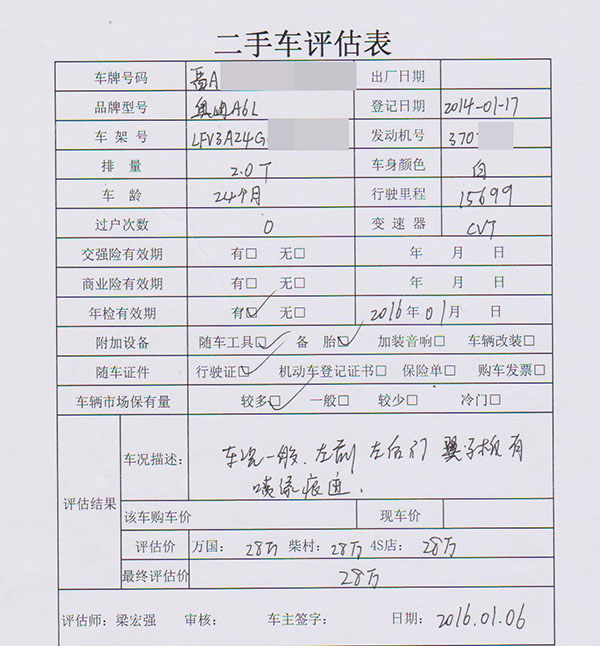 二手车评估表
车牌号码 晋A 出厂日期
品牌型号 奥迪A6L 登记日期 2014-01-17
车架号 LFV3A24G 发动机号 370
排量 2.0T 车身颜色 白
车龄 24个月 行驶里程 15699
过户次数 0 变速器 CVT
交强险有效期 有□ 无□ 年 月 日
商业险有效期 有□ 无□ 年 月 日
年检有效期 有☑ 无□ 2016年01月 日
附加设备 随车工具☑ 备胎☑ 加装音响□ 车辆改装□
随车证件 行驶证☑ 机动车登记证书□ 保险单□ 购车发票□
车辆市场保有量 较多☑ 一般□ 较少□ 冷门□
评估结果 车况描述: 车况一般、左前 左后门 翼子板有
喷漆痕迹、
该车购车价 现车价
评估价 万国: 28万 柴村: 28万 4S店: 28万
最终评估价 28万
评估师: 梁宏强 审核: 车主签字: 日期: 2016.01.06